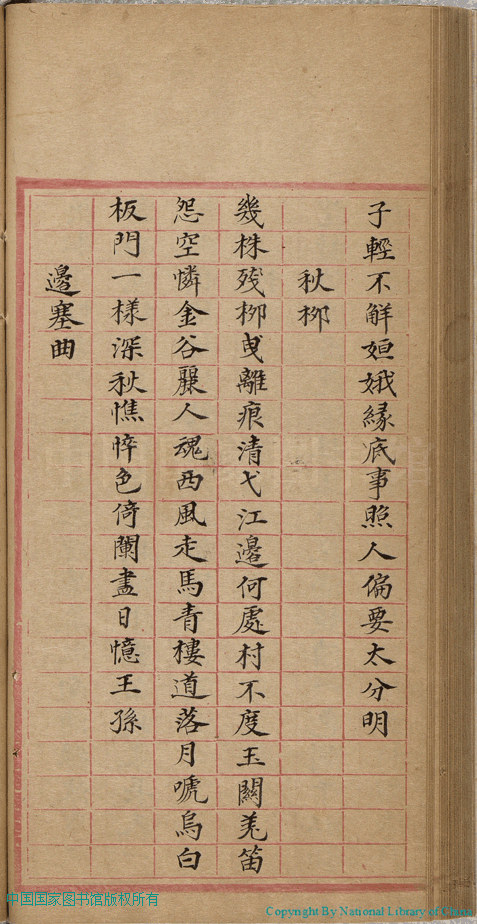 子輕不解姮娥緣底事照人偏要太分明
秋柳
幾株殘柳曳離痕清弋江邊何處村不度玉關羌笛
怨空憐金谷麗人魂西風走馬青樓道落月嗁烏白
板門一樣深秋憔悴色倚闌盡日憶王孫
邊塞曲
中国国家图书馆版权所有
Copyright By National Library of China